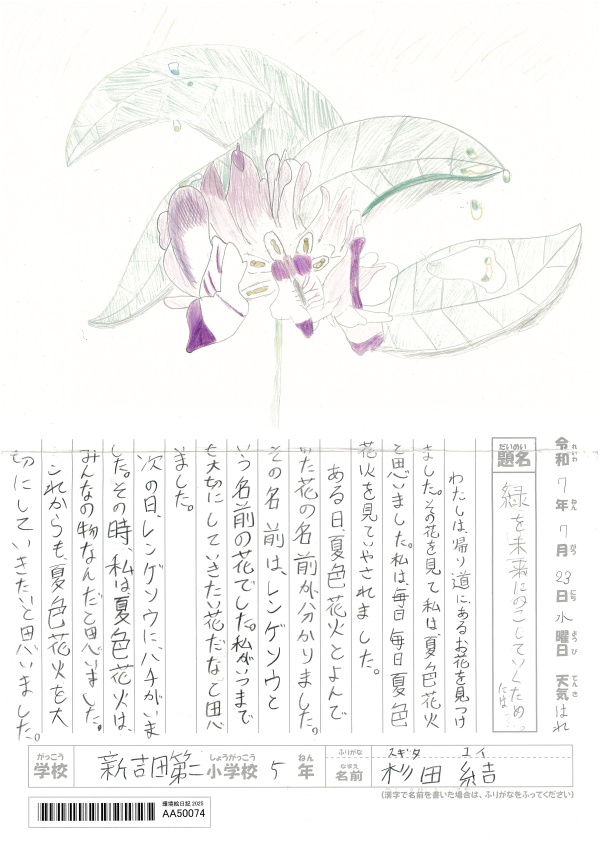 令和7年7月23日水曜日 天気はれ
れいわ ねん がつ にち ようび てんき
だいめい
題名
緑を未来にのこしていくため
には…
わたしは、帰り道に、あるお花を見つけ
ました。その花を見て私は、夏色花火
と思いました。私は、毎日毎日夏色
花火を見ていやされました。
ある日、夏色花火とよんで
いた花の名前が分かりました。
その名前は、レンゲソウと
いう名前の花でした。私がいつまで
も大切にしていきたい花だなと思い
ました。
次の日、レンゲソウに、ハチがいま
した。その時、私は、夏色花火は、
みんなの物なんだと思いました。
これからも、夏色花火を大
切にしていきたいと思いました。
がっこう しょうがっこう ねん ふりがな スギタ ユイ
学校 新吉田第二小学校 5年 なまえ 名前 杉田 結
(漢字で名前を書いた場合は、ふりがなをふってください)
環境絵日記 2025
AA50074